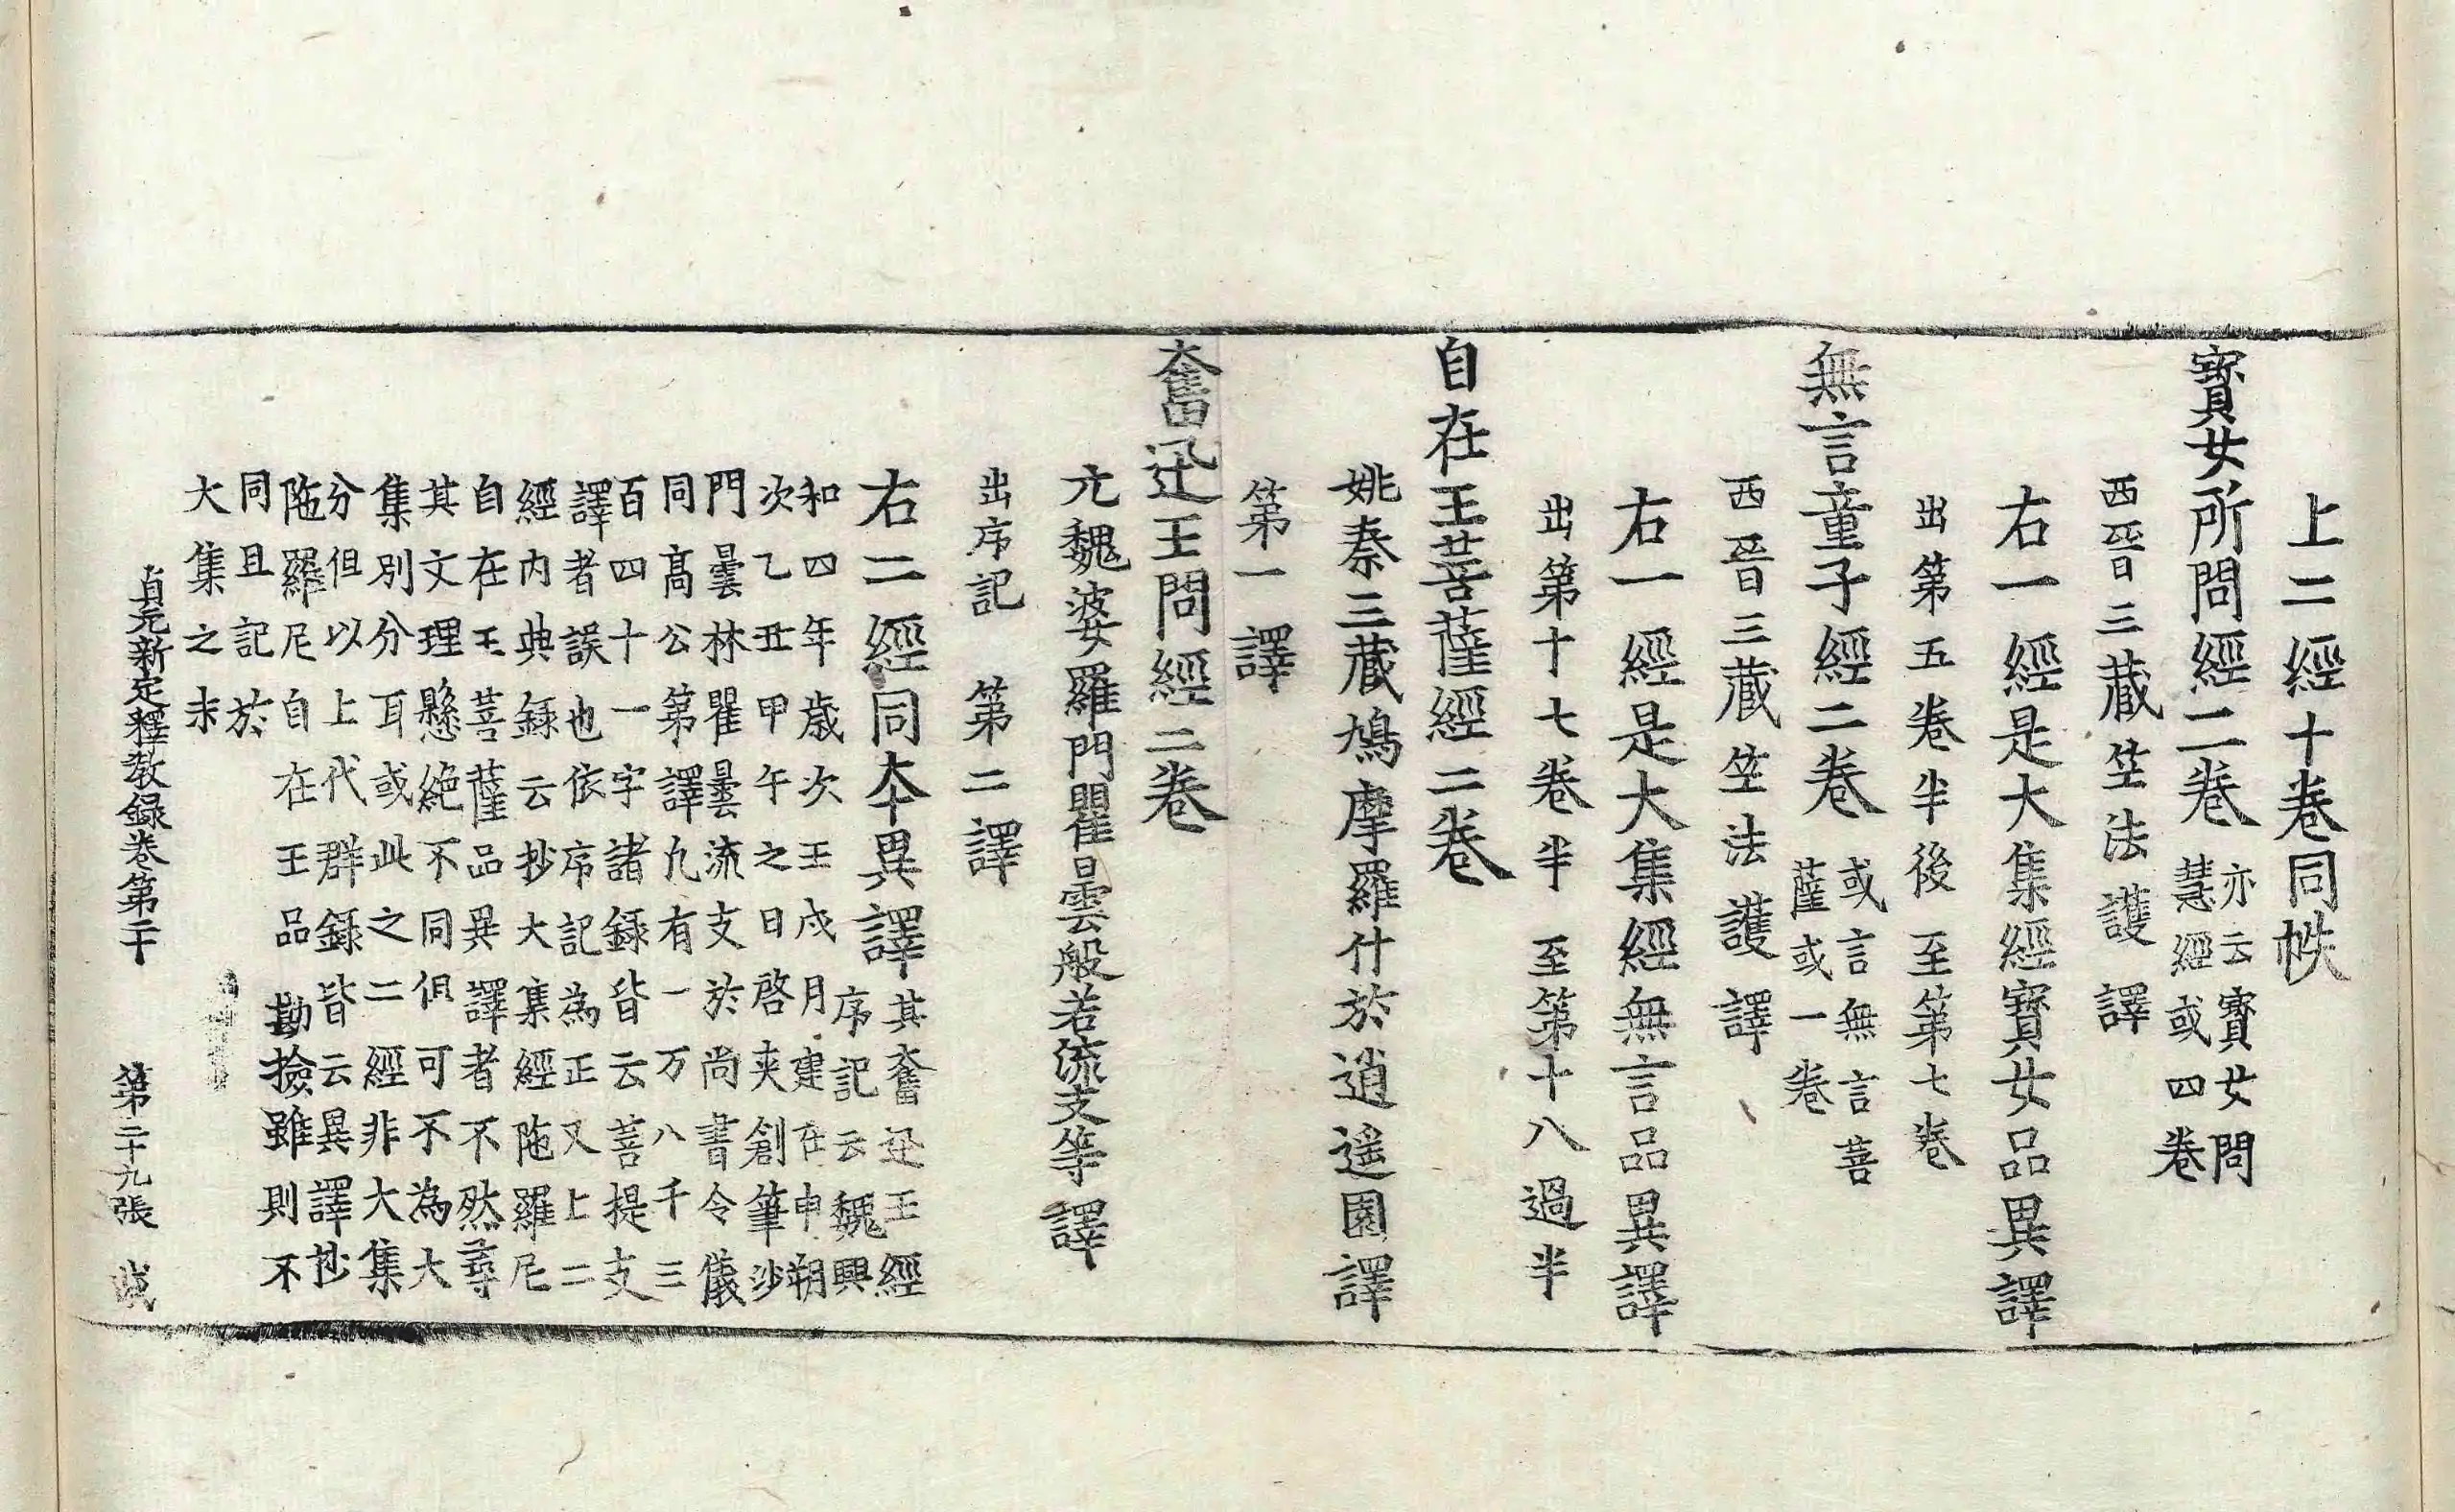 上二經十卷同帙
寶女所問經二卷
亦云寶女問
慧經或四卷
西晉三藏竺法護譯
右一經是大集經寶女品異譯
出第五卷半後至第七卷
無言童子經二卷
或言無言菩
薩或一卷
西晉三藏竺法護譯
右一經是大集經無言品異譯
出第十七卷半至第十八過半
自在王菩薩經二卷
姚秦三藏鳩摩羅什於逍遥園譯
第一譯
奮迅王問經二卷
元魏婆羅門瞿曇般若流支等譯
出序記　第二譯
右二經同夲異譯
其奮迅王經
序記云魏興
和四年歳次王戍月建在申朔
次乙丑甲午之日啓夾創筆沙
門曇林瞿曇流支於尚書令儀
同髙公第譯九有一万八千三
百四十一字諸録皆云菩提支
譯者誤也依序記為正又上二
經内典録云抄大集經陁羅尼
自在王菩薩品異譯者不然尋
其文理懸絶不同但可不為大
集別分耳或此之二經非大集
分但以上代群録皆云異譯抄
陁羅尼自在王品勘撿雖則不
同且記於
大集之末
貞元新定釋教録卷第二十　第二十九張